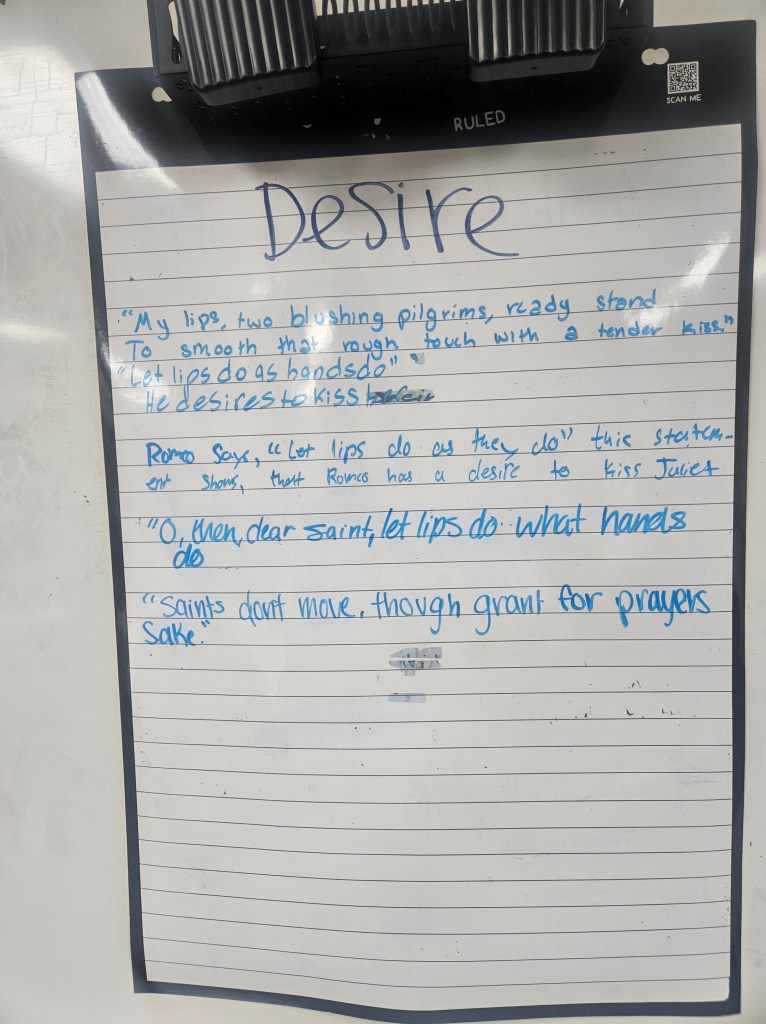 SCAN ME
RULED
Desire
"My lips, two blushing pilgrims, ready stand
To smooth that rough touch with a tender kiss."
"Let lips do as hands do"
He desires to kiss
Romeo Says, "Let lips do as they do" this statem-
ent shows, that Romeo has a desire to kiss Juliet
"O, then, dear saint, let lips do what hands
do
"Saints don't move, though grant for prayers
sake."